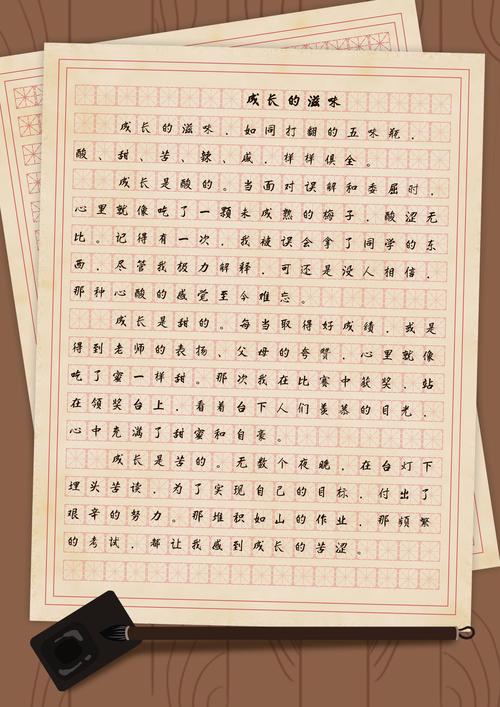 成长的滋味
成长的滋味，如同打翻的五味瓶，
酸、甜、苦、辣、咸，样样俱全。
成长是酸的。当面对误解和委屈时，
心里就像吃了一颗未成熟的梅子，酸涩无
比。记得有一次，我被误会拿了同学的东
西，尽管我极力解释，可还是没人相信，
那种心酸的感觉至今难忘。
成长是甜的。每当取得好成绩，或是
得到老师的表扬、父母的夸赞，心里就像
吃了蜜一样甜。那次我在比赛中获奖，站
在领奖台上，看着台下人们羡慕的目光，
心中充满了甜蜜和自豪。
成长是苦的。无数个夜晚，在台灯下
埋头苦读，为了实现自己的目标，付出了
艰辛的努力。那堆积如山的作业，那频繁
的考试，都让我感到成长的苦涩。